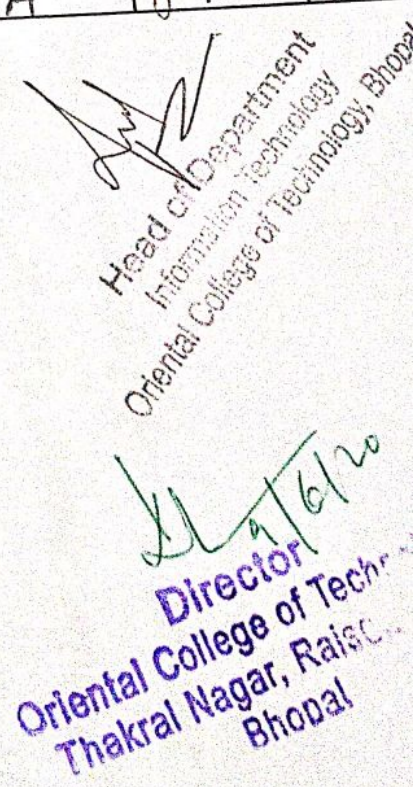 Head of Department
Information Technology
Oriental College of Technology, Bhopal
9/6/20
Director
Oriental College of Techn
Thakral Nagar, Raise
Bhopal